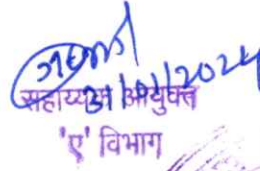 31/01/2024
सहाय्यक आयुक्त
'ए' विभाग